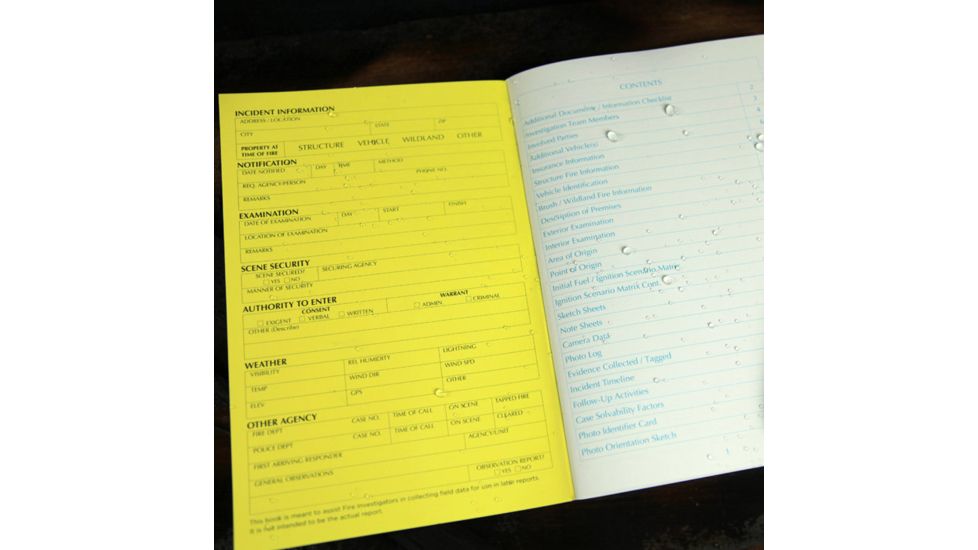 INCIDENT INFORMATION
ADDRESS / LOCATION
CITY STATE ZIP
PROPERTY AT
TIME OF FIRE STRUCTURE VEHICLE WILDLAND OTHER
NOTIFICATION
DATE NOTIFIED DAY TIME METHOD
REQ. AGENCY/PERSON PHONE NO.
REMARKS
EXAMINATION
DATE OF EXAMINATION DAY START FINISH
LOCATION OF EXAMINATION
REMARKS
SCENE SECURITY
SCENE SECURED? SECURING AGENCY
☐ YES ☐ NO
MANNER OF SECURITY
AUTHORITY TO ENTER
CONSENT WARRANT
☐ EXIGENT ☐ VERBAL ☐ WRITTEN ☐ ADMIN ☐ CRIMINAL
OTHER (Describe)
WEATHER
VISIBILITY REL HUMIDITY LIGHTNING
TEMP WIND DIR WIND SPD
ELEV GPS OTHER
OTHER AGENCY
FIRE DEPT CASE NO. TIME OF CALL ON SCENE TAPPED FIRE
POLICE DEPT CASE NO. TIME OF CALL ON SCENE CLEARED
FIRST ARRIVING RESPONDER AGENCY/UNIT
GENERAL OBSERVATIONS OBSERVATION REPORT?
☐ YES ☐ NO
This book is meant to assist Fire Investigators in collecting field data for use in later reports.
It is not intended to be the actual report.
CONTENTS
Additional Document / Information Checklist 2
Investigation Team Members 3
Involved Parties 4
Additional Vehicle(s)
Insurance Information
Structure Fire Information
Vehicle Identification
Brush / Wildland Fire Information
Description of Premises
Exterior Examination
Interior Examination
Area of Origin
Point of Origin
Initial Fuel / Ignition Scenario Matrix
Ignition Scenario Matrix Cont.
Sketch Sheets
Note Sheets
Camera Data
Photo Log
Evidence Collected / Tagged
Incident Timeline
Follow-Up Activities
Case Solvability Factors
Photo Identifier Card
Photo Orientation Sketch
1